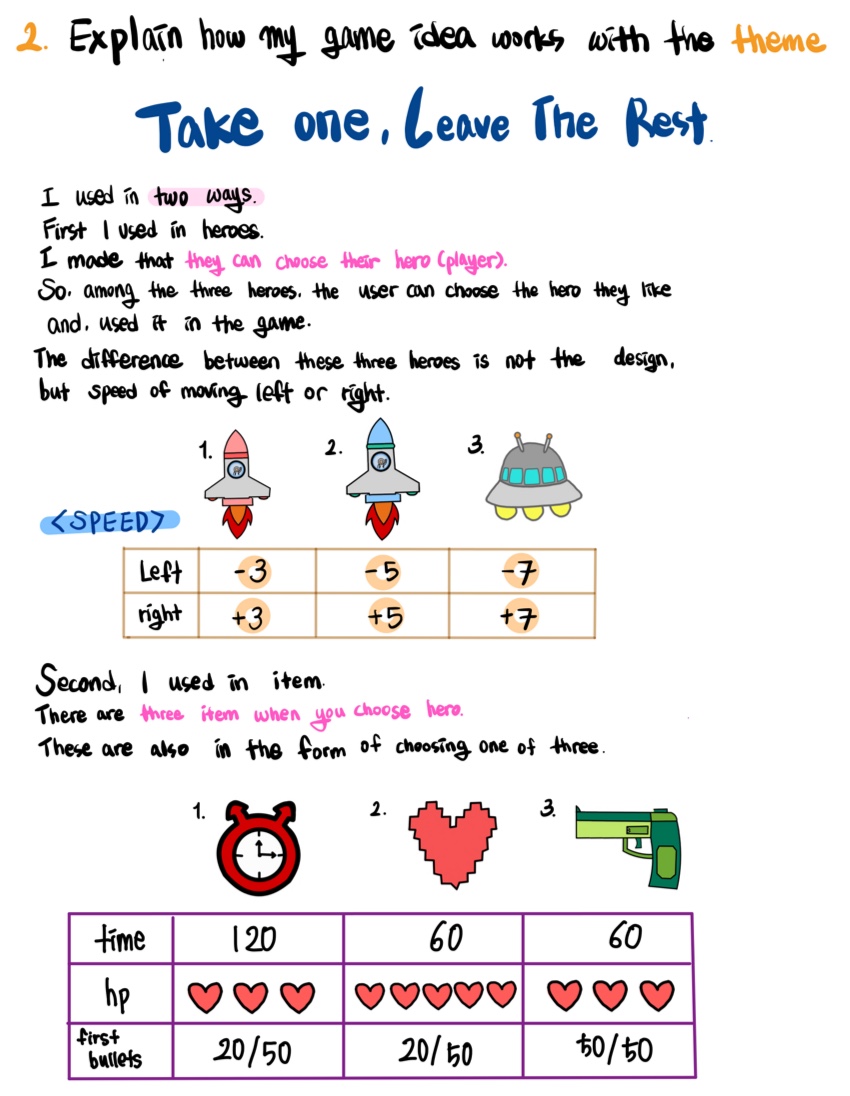 2. Explain how my game idea works with the theme
Take one, Leave The Rest.
I used in two ways.
First I used in heroes.
I made that they can choose their hero (player).
So, among the three heroes, the user can choose the hero they like
and, used it in the game.
The difference between these three heroes is not the design,
but speed of moving left or right.
1. 2. 3.
<SPEED>
Left -3 -5 -7
right +3 +5 +7
Second, I used in item.
There are three item when you choose hero.
These are also in the form of choosing one of three.
1. 2. 3.
time 120 60 60
hp
first
bullets 20/50 20/50 50/50